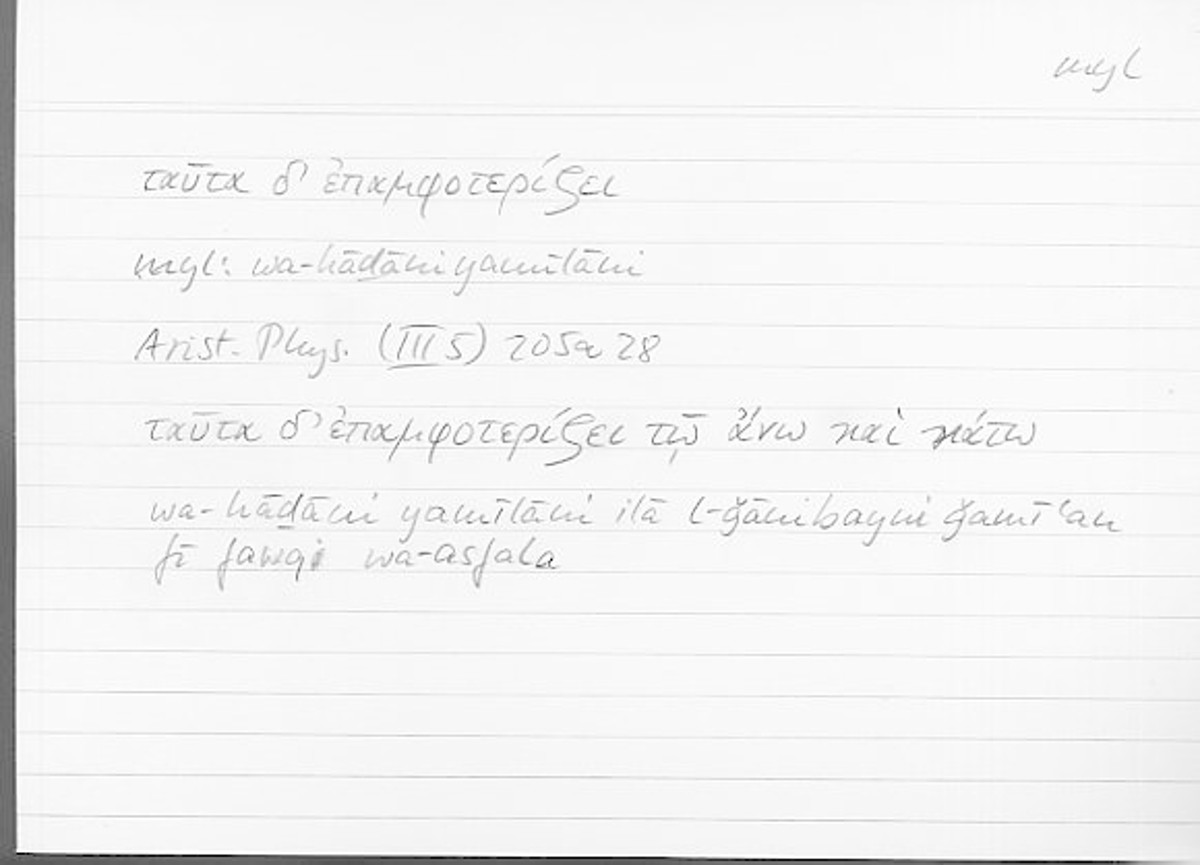 myl
ταῦτα δ' ἐπαμφοτερίζει
myl: wa-hāḏāni yamīlāni
Arist. Phys. (III 5) 205a 28
ταῦτα δ' ἐπαμφοτερίζει τῷ ἄνω καὶ κάτω
wa-hāḏāni yamīlāni ilā l-ǧānibayni ǧamīʿan
fī fawqi wa-asfala